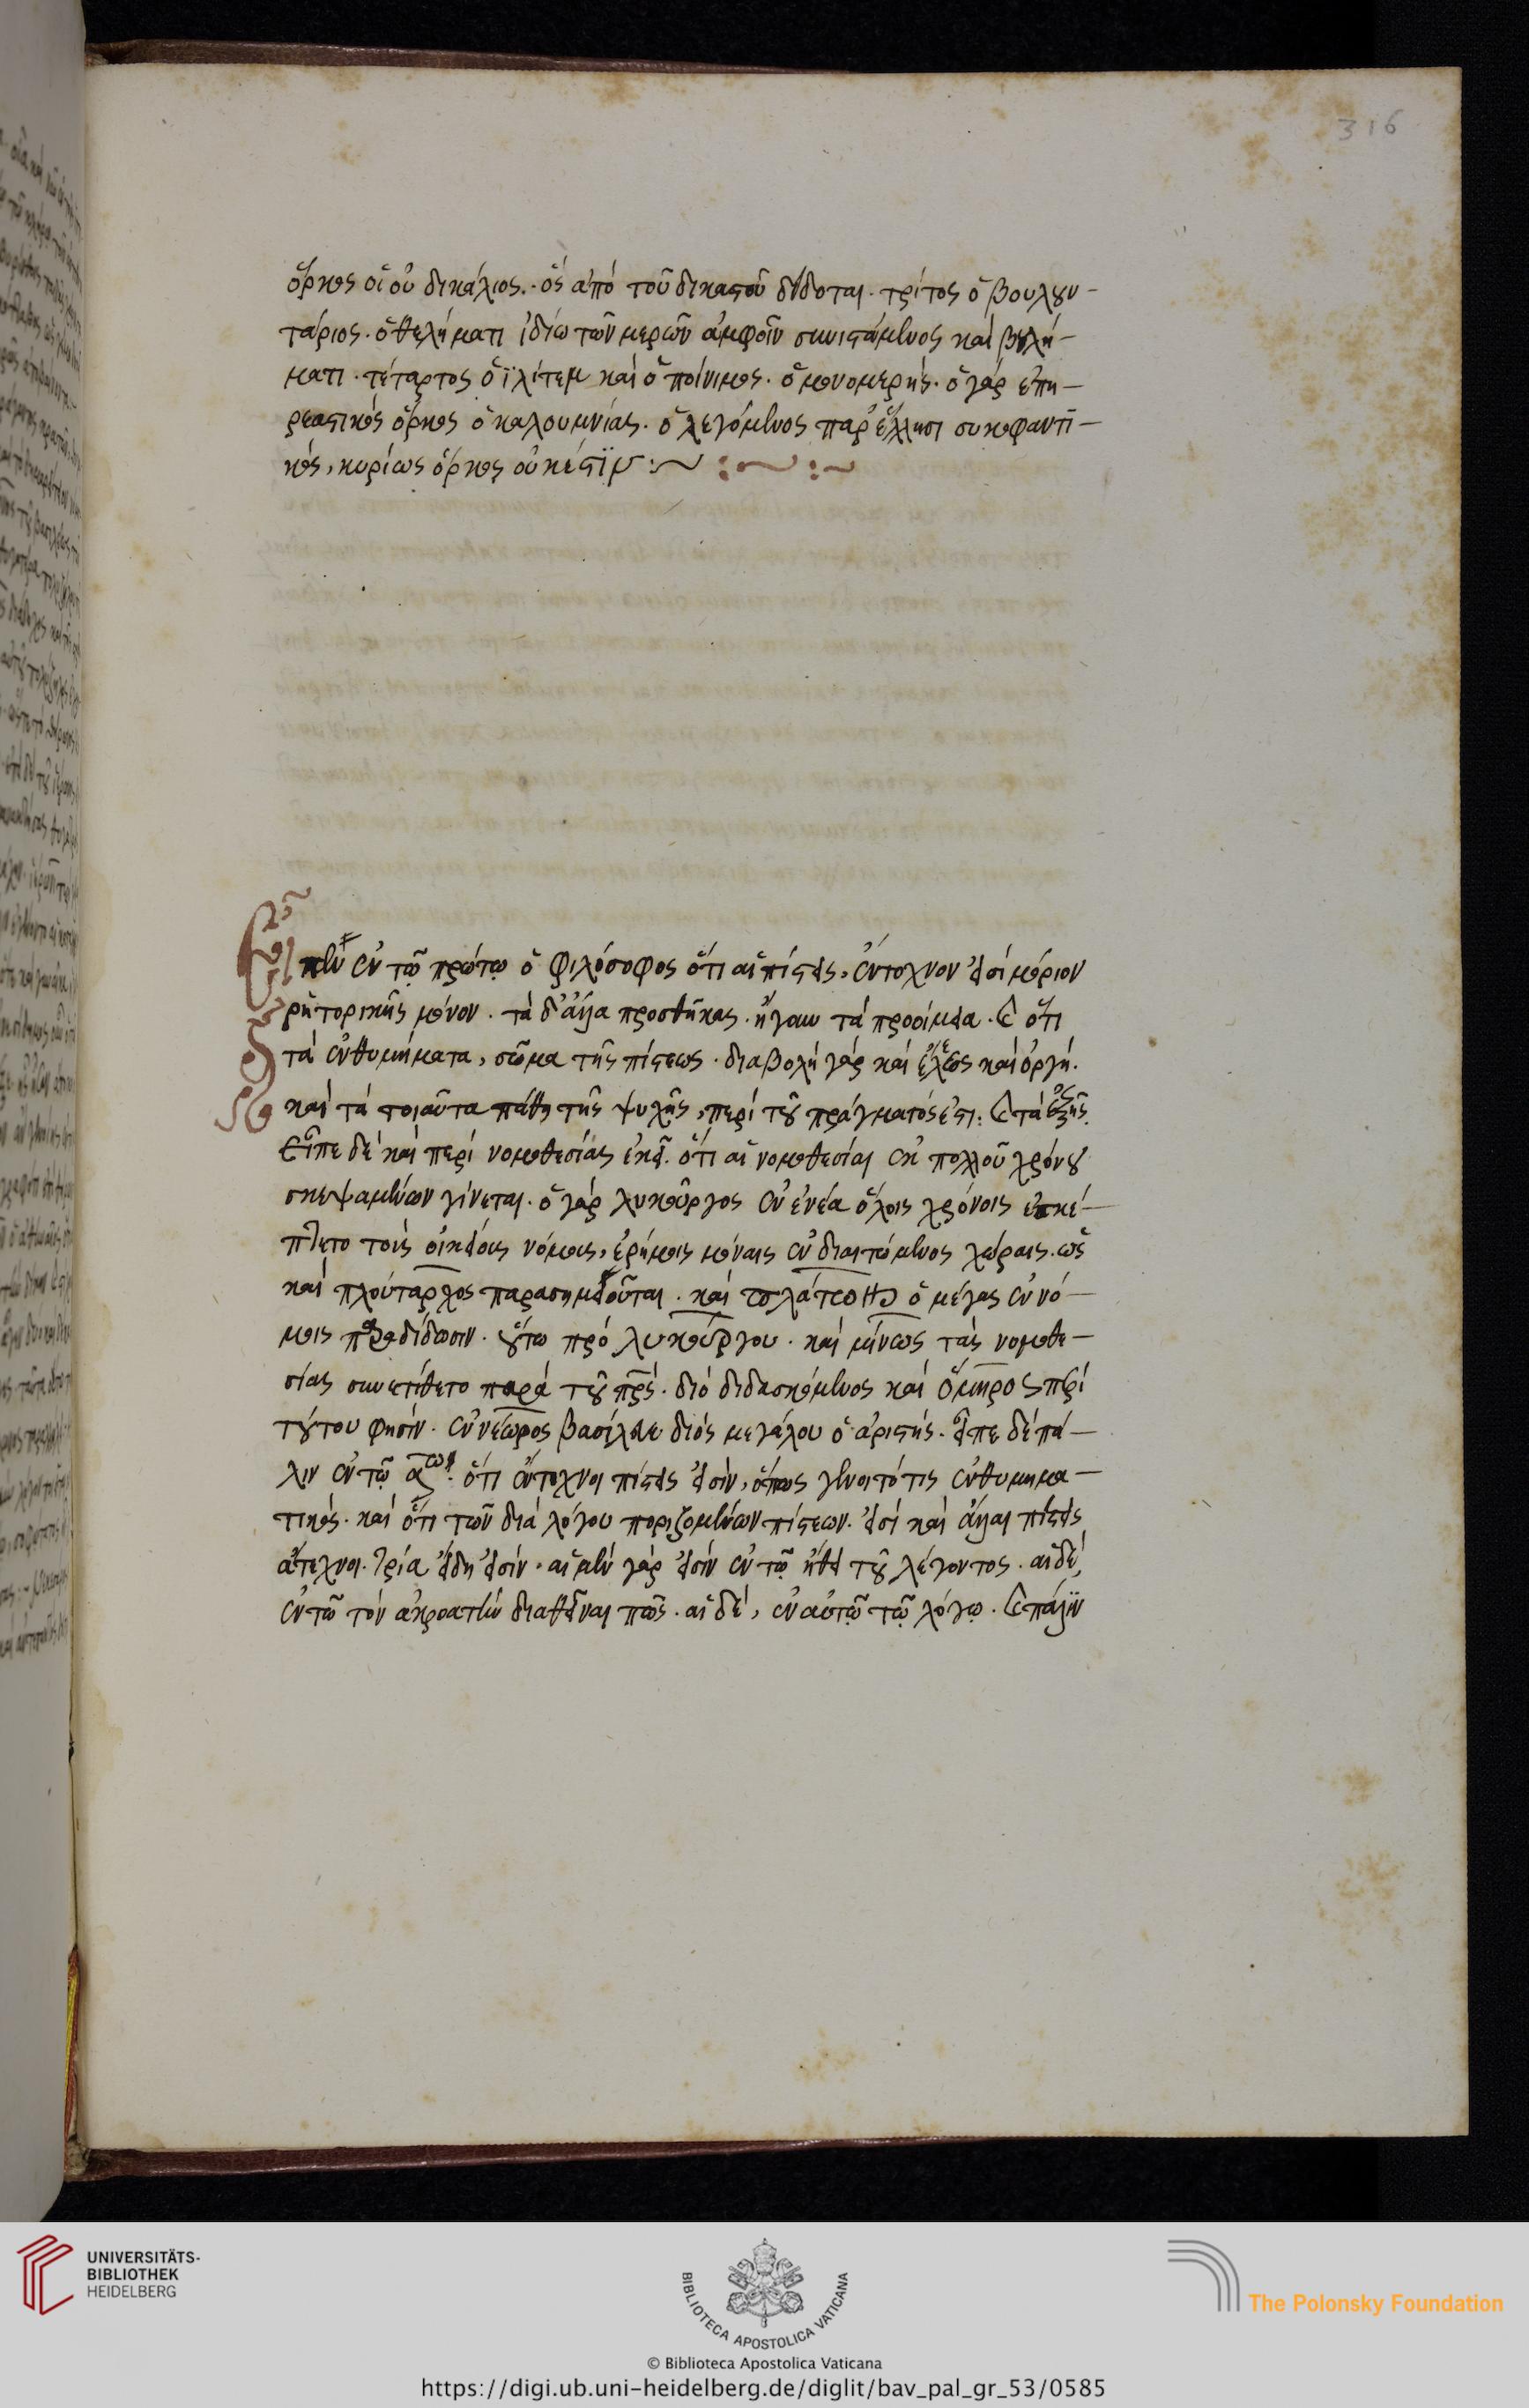 316
ὅρκος ὁ οὐ δικάλιος. ὃς ἀπὸ τοῦ δικαστοῦ δίδοται. τρίτος ὁ βουλουν-
τάριος. ὁ θελήματι ἰδίω τῶν μερῶν ἀμφοῖν συνιστάμενος καὶ βουλή-
ματι. τέταρτος ὁ ἰλίτεμ καὶ ὁ ποίνιμος. ὁ μονομερής. ὁ γὰρ ἐπη-
ρεαστικὸς ὅρκος ὁ καλουμνίας. ὁ λεγόμενος παρ' ἕλλησι συκοφαντι-
κός, κυρίως ὅρκος οὐκ ἔστιν :~ :~ :~
Εἶπεν ἐν τῷ πρώτῳ ὁ φιλόσοφος ὅτι αἱ πίστεις, ἔντεχνον εἰσὶ μόριον
ῥητορικῆς μόνον. τὰ δ' ἄλλα προσθῆκαι. ἤγουν τὰ προοίμια. καὶ ὅτι
τὰ ἐνθυμήματα, σῶμα τῆς πίστεως. διαβολὴ γὰρ καὶ ἔλεος καὶ ὀργή.
καὶ τὰ τοιαῦτα πάθη τῆς ψυχῆς, περὶ τοῦ πράγματός ἐστι: καὶ τὰ ἑξῆς.
Εἶπε δὲ καὶ περὶ νομοθεσίας ἐκεῖ. ὅτι αἱ νομοθεσίαι ἐκ πολλοῦ χρόνου
σκεψαμένων γίνεται. ὁ γὰρ λυκοῦργος ἐν ἐνέα ὅλοις χρόνοις ἐσκέ-
πτετο τοὺς οἰκείους νόμους, ἐρήμοις μόναις ἐνδιαιτώμενος χώραις. ὡς
καὶ πλούταρχος παρασημειοῦται. καὶ πλάτων ὁ μέγας ἐν νό-
μοις παραδίδωσιν. οὕτω πρὸ λυκούργου. καὶ μίνως τὰς νομοθε-
σίας συνετίθετο παρὰ τοῦ πρς. διὸ διδασκόμενος καὶ ὅμηρος περὶ
τούτου φησίν. ἐννέωρος βασίλευε διὸς μεγάλου ὀαριστής. εἶπε δὲ πά-
λιν ἐν τῷ ατω. ὅτι ἔντεχνοι πίστεις εἰσίν, ὅπως γένοιτό τις ἐνθυμημα-
τικός. καὶ ὅτι τῶν διὰ λόγου ποριζομένων πίστεων. εἰσὶ καὶ ἄλλαι πίστεις
ἄτεχνοι. τρία εἴδη εἰσίν. αἱ μὲν γὰρ εἰσὶν ἐν τῷ ἤθει τοῦ λέγοντος. αἱ δὲ,
ἐν τῷ τὸν ἀκροατὴν διαθεῖναι πῶς. αἱ δὲ, ἐν αὐτῷ τῷ λόγῳ. καὶ πάλιν
UNIVERSITÄTS-
BIBLIOTHEK
HEIDELBERG
BIBLIOTECA APOSTOLICA VATICANA
The Polonsky Foundation
© Biblioteca Apostolica Vaticana
https://digi.ub.uni-heidelberg.de/diglit/bav_pal_gr_53/0585